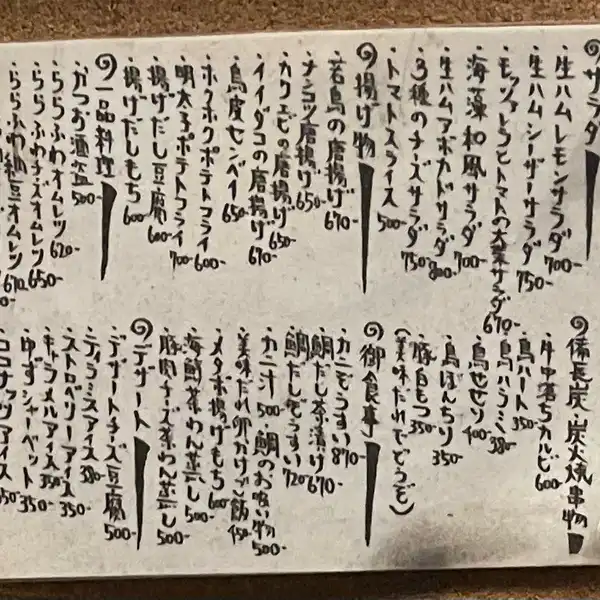 サラダ
・生ハムレモンサラダ 700-
・生ハムシーザーサラダ 750-
・モッツァレラとトマトの大葉サラダ 670-
・海藻和風サラダ 700-
・生ハムアボカドサラダ 800-
・3種のチーズサラダ 750-
・トマトスライス 500-
揚げ物
・若鳥の唐揚げ 670-
・ナンコツ唐揚げ 650-
・カワエビの唐揚げ 650-
・イイダコの唐揚げ 670-
・鳥皮センベイ 650-
・ホクホクポテトフライ 600-
・明太子ポテトフライ 700-
・揚げだし豆腐 600-
・揚げだしもち 600-
一品料理
・かつお酒盗 500-
・ふわふわオムレツ 620-
・ふわチーズオムレツ 650-
・納豆オムレツ 670-
備長炭・炭火焼串物
・牛中落ちカルビ 600-
・鳥ハート 350-
・鳥ハラミ 380-
・鳥せせり 400-
・鳥ぼんちり 350-
・豚白もつ 350-
(美味だれでどうぞ)
御食事
・カニぞうすい 870-
・鯛だし茶漬け 670-
・鯛だしぞうすい 720-
・カニ汁 500-・鯛のお吸い物 500-
・美味だれ卵かけご飯 450-
・メタボ揚げもち 600-
・海鮮茶わん蒸し 500-
・豚肉チーズ茶わん蒸し 500-
デザート
・デザートチーズ豆腐 500-
・ティラミスアイス 380-
・ストロベリーアイス 350-
・キャラメルアイス 350-
・ゆずシャーベット 350-
・ココナッツアイス 350-